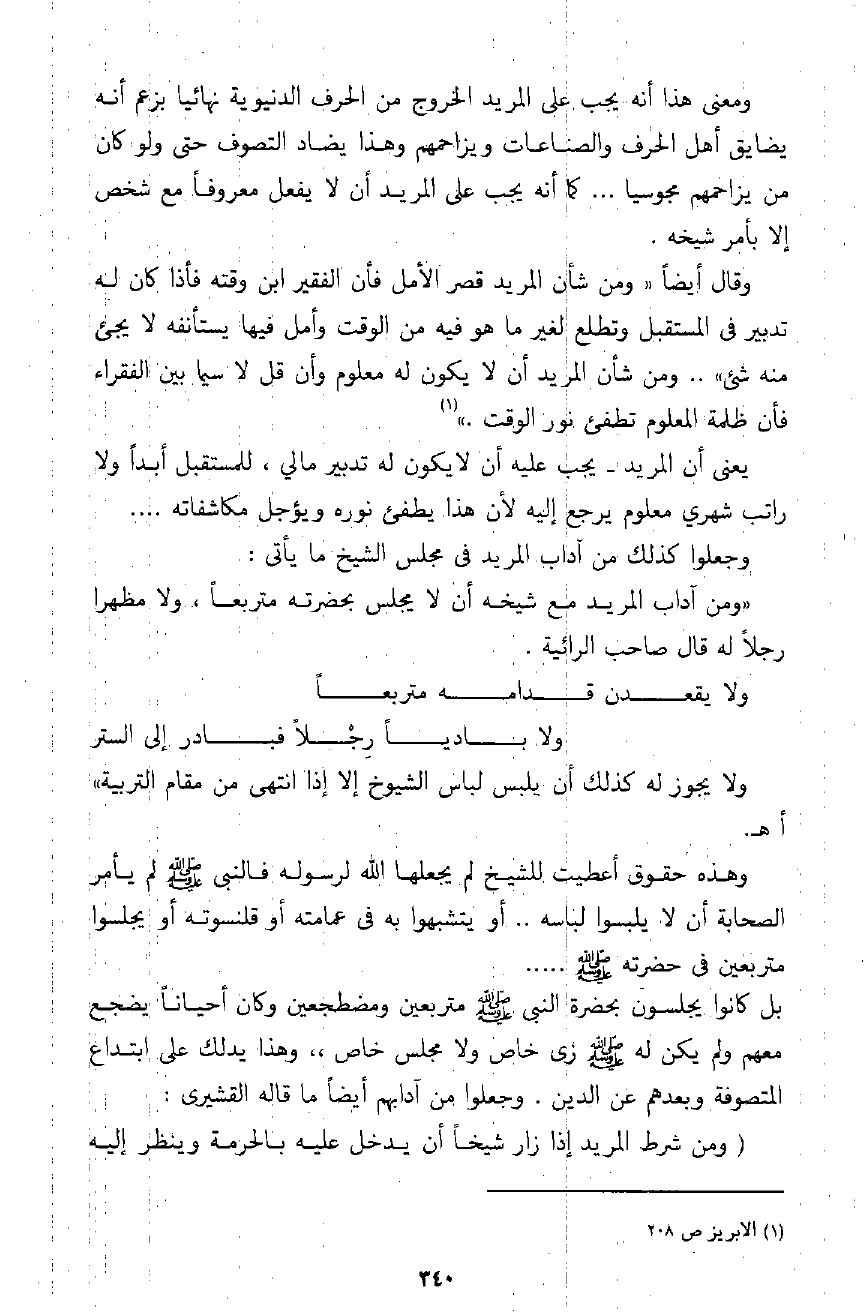 ومعنى هذا أنه يجب على المريد الخروج من الحرف الدنيوية نهائيا بزعم أنه
يضايق أهل الحرف والصناعات ويزاحمهم وهذا يضاد التصوف حتى ولو كان
من يزاحمهم مجوسيا ... كما أنه يجب على المريد أن لا يفعل معروفاً مع شخص
إلا بأمر شيخه .
وقال أيضاً « ومن شأن المريد قصر الأمل فأن الفقير ابن وقته فأذا كان له
تدبير فى المستقبل وتطلع لغير ما هو فيه من الوقت وأمل فيها يستأنفه لا يجئ
منه شئ» .. ومن شأن المريد أن لا يكون له معلوم وأن قل لا سيما بين الفقراء
فأن ظلمة المعلوم تطفئ نور الوقت .»(١)
يعنى أن المريد ـ يجب عليه أن لايكون له تدبير مالي ، للمستقبل أبداً ولا
راتب شهري معلوم يرجع إليه لأن هذا يطفئ نوره ويؤجل مكاشفاته ....
وجعلوا كذلك من آداب المريد فى مجلس الشيخ ما يأتى :
«ومن آداب المريد مع شيخه أن لا يجلس بحضرته متربعاً ، ولا مظهرا
رجلاً له قال صاحب الرائية .
ولا يقعدن قدامه متربعاً
ولا بادياً رِجْلاً فبادر إلى الستر
ولا يجوز له كذلك أن يلبس لباس الشيوخ إلا إذا انتهى من مقام التربية»
أ هـ.
وهذه حقوق أعطيت للشيخ لم يجعلها الله لرسوله فالنبى ﷺ لم يأمر
الصحابة أن لا يلبسوا لباسه .. أو يتشبهوا به فى عمامته أو قلنسوته أو يجلسوا
متربعين فى حضرته ﷺ .....
بل كانوا يجلسون بحضرة النبى ﷺ متربعين ومضطجعين وكان أحياناً يضجع
معهم ولم يكن له ﷺ زى خاص ولا مجلس خاص ،، وهذا يدلك على ابتداع
المتصوفة وبعدهم عن الدين . وجعلوا من آدابهم أيضاً ما قاله القشيرى :
( ومن شرط المريد إذا زار شيخاً أن يدخل عليه بالحرمة وينظر إليه
(١) الابريز ص ٢٠٨
٣٤٠